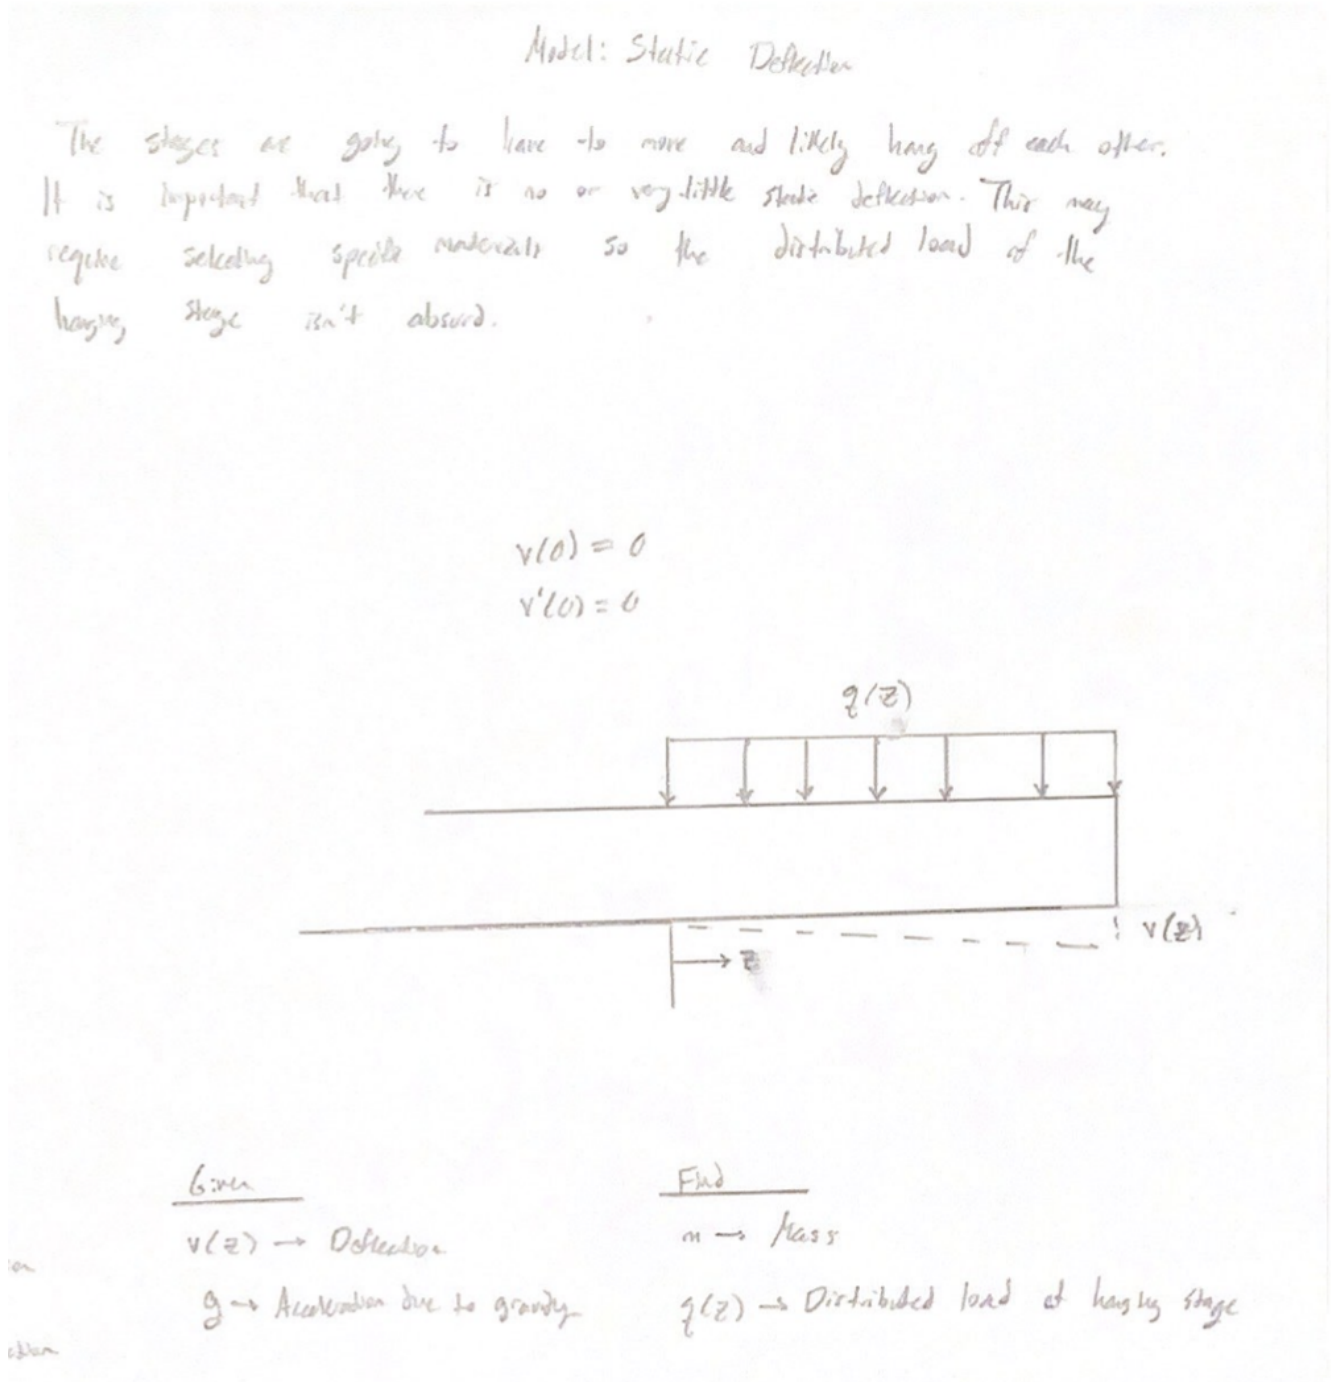 Model: Static Deflection
The stages are going to have to move and likely hang off each other.
It is important that there is no or very little static deflection. This may
require selecting specific materials so the distributed load of the
hanging stage isn't absurd.
v(0) = 0
v'(0) = 0
q(z)
v(z)
z
Given
Find
v(z) → Deflection
m → Mass
g → Acceleration due to gravity
q(z) → Distributed load of hanging stage